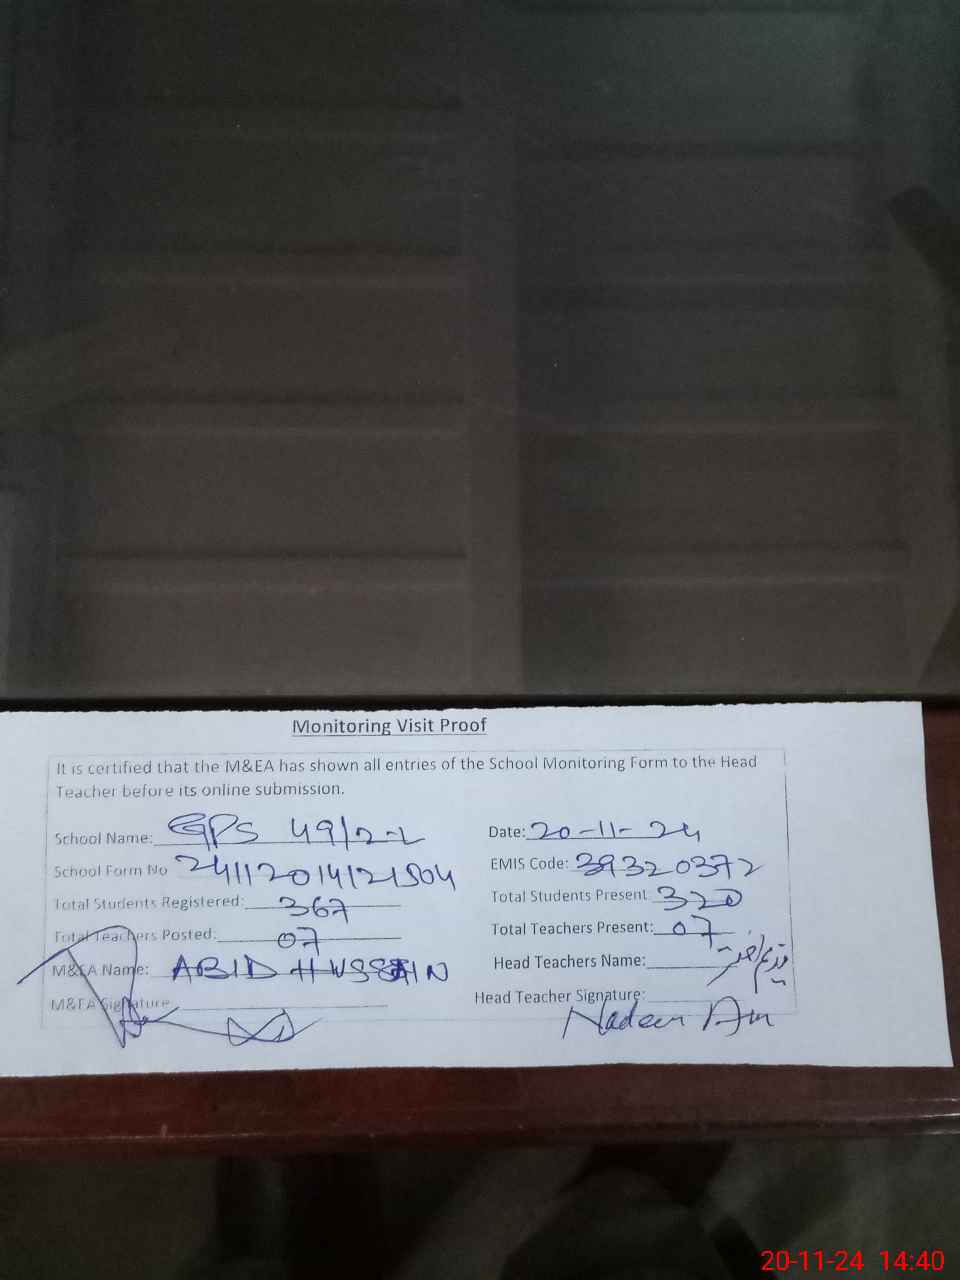 Monitoring Visit Proof
It is certified that the M&EA has shown all entries of the School Monitoring Form to the Head
Teacher before its online submission.
School Name: GPS 49/2-L Date: 20-11-24
School Form No 24112014121504 EMIS Code: 39320372
Total Students Registered: 367 Total Students Present 320
Total Teachers Posted: 07 Total Teachers Present: 07
M&EA Name: ABID HUSSAIN Head Teachers Name:
M&EA Signature Head Teacher Signature:
Nadeem
20-11-24 14:40